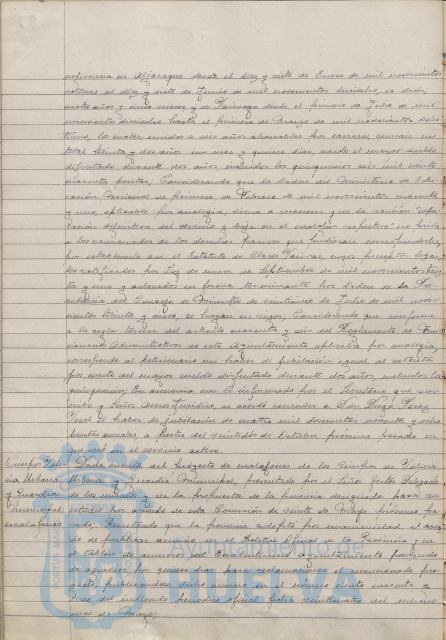 en Aljaraque desde el diez y siete de Enero de mil novecientos
catorce al diez y siete de Junio de mil novecientos dieciocho, es decir,
cuatro años y cinco meses, y de desde el primero de Julio de mil
novecientos dieciocho hasta el primero de Marzo de mil novecientos
los cuales unidos a seis años abonables por carrera, suman un
total treinta y dos años un mes y quince días, siendo el mayor sueldo
disfrutado durante dos años, incluidos los quinquenios seis mil ciento
cuarenta pesetas; Considerando que la Orden del Ministerio de
Nacional de primero de Febrero de mil novecientos cuarenta
y uno, aplicable por analogía, viene a reconocer que la sanción
definitiva del servicio y baja en el escalafón respectivo no
a los sancionados de los derechos pasivos que pudieran corresponderles,
por establecerlo así el Estatuto de Clases Pasivas, cuyos preceptos
ratificados por Ley de nueve de Septiembre de mil novecientos
y uno y aclarados en forma terminante por Orden de la Pre-
sidencia del Consejo de Ministros de veinticinco de Julio de mil nove-
cientos treinta y cinco, se hallan en vigor; Considerando que conforme
a la regla tercera del artículo cuarenta y seis del Reglamento de Fun-
cionarios Administrativos de este Ayuntamiento aplicable por analogía,
corresponde al peticionario un haber de jubilación igual al setenta
por ciento del mayor sueldo disfrutado durante dos años, incluidos los
quinquenios; En armonía con lo informado por el Secretario que sus-
cribe y Señor Asesor Jurídico, se acordó conceder a Don Diego Pérez
el haber de jubilación de cuatro mil doscientos noventa y ocho
pesetas anuales, a partir del veintidós de Octubre próximo pasado en
que cesó en el servicio activo.
Cuerpos Vete- Dada cuenta del Proyecto de escalafones de los Cuerpos de Veterina
ria Urbana Urbana y Guardia Municipal, presentado por el Señor Gestor Delegado
y Guardia de los mismos y de la propuesta de la ponencia designada para su
Municipal: estudio por acuerdo de esta Comisión de siete de Mayo próximo pa-
escalafones sado; Resultando que la ponencia adoptó por unanimidad el acuer-
do de publicar anuncio en el Boletín Oficial de la Provincia y en
el tablón de anuncios del Excelentísimo Ayuntamiento poniendo
de por quince días para reclamaciones el mencionado pro-
yecto, publicándose dicho anuncio en el número ciento cuarenta y
del indicado periódico oficial fecha veinticuatro del mismo
mes de Mayo;
Ayuntamiento de
HUELVA